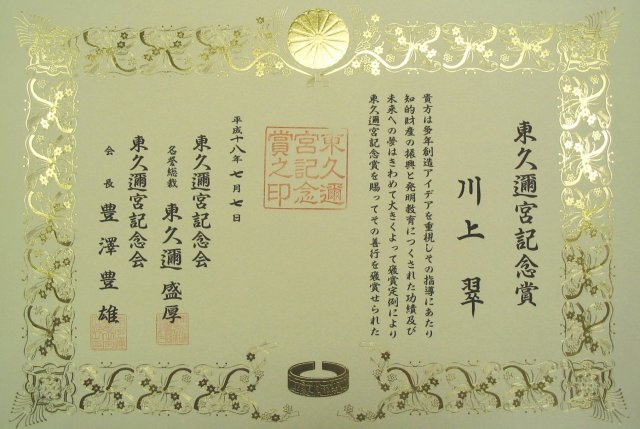 東久邇宮記念賞
川上 翠
貴方は多年創造アイデアを重視しその指導にあたり
知的財産の振興と発明教育につくされた功績及び
未来への夢はきわめて大きくよって褒賞定例により
東久邇宮記念賞を賜ってその善行を褒賞せられた
東久邇
宮記念
賞之印
平成十八年 七月 七日
東久邇宮記念会
名誉総裁 東久邇 盛厚
東久邇宮記念会
会長 豊澤 豊雄